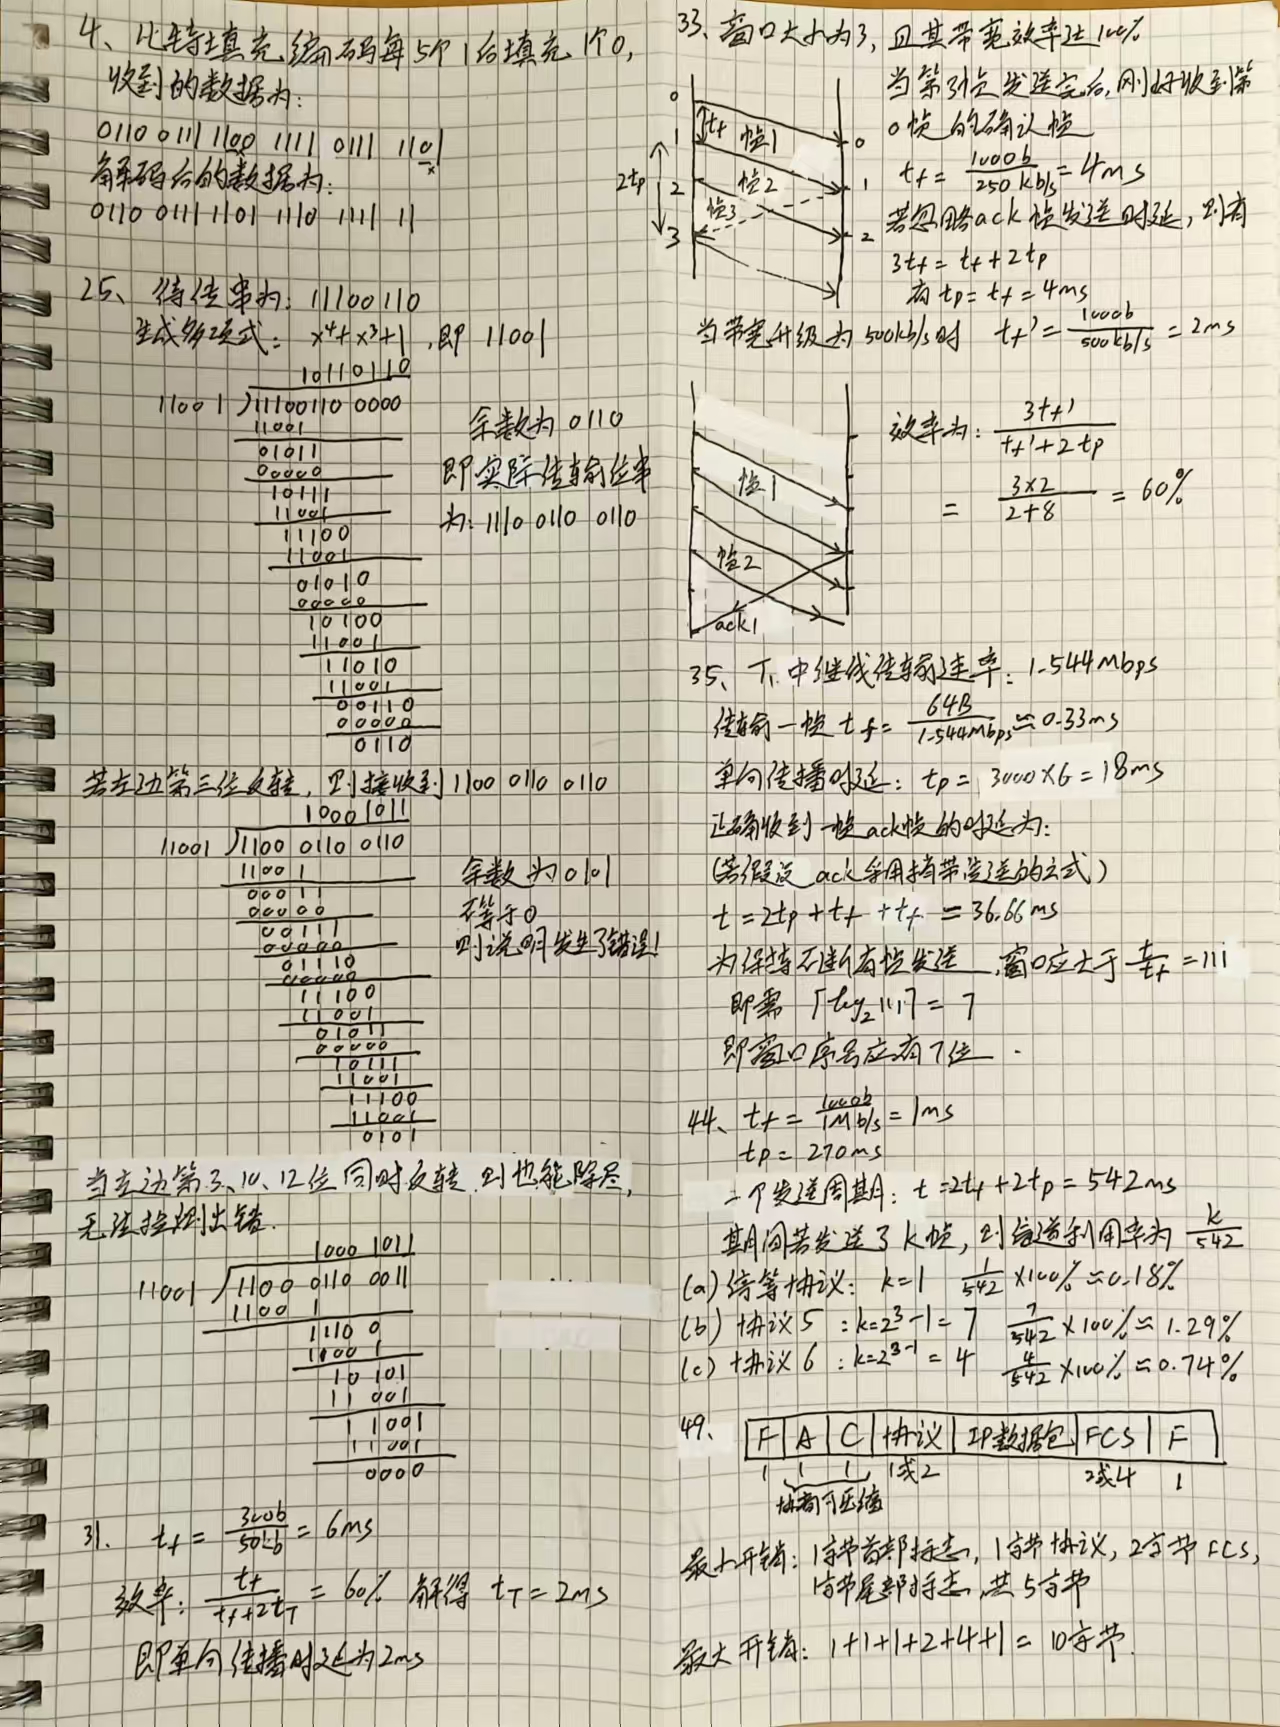 4、比特填充编码每5个1后填充1个0,
收到的数据为:
0110 0111 1100 1111 0111 1101
x
解码后的数据为:
0110 0111 1101 1110 1111 11
25、待传串为: 11100110
生成多项式: x⁴+x³+1, 即 11001
10110110
11001 ) 11100110 0000
11001
01011
00000
10111
11001
11100
11001
01010
00000
10100
11001
11010
11001
00110
00000
0110
余数为 0110
即实际传输位串
为: 1110 0110 0110
若左边第三位反转, 则接收到 1100 0110 0110
1000 1011
11001 ) 1100 0110 0110
1100 1
00011
00000
00111
00000
01110
00000
11100
11001
01011
00000
10111
11001
11100
11001
0101
余数为0101
不等于0
则说明发生了错误!
当左边第3、10、12位同时反转,则也能除尽,
无法检测出错.
1000 1011
11001 ) 1100 0110 0011
1100 1
1110 0
1100 1
10 101
11 001
1 1001
1 1001
0000
31. tf = 300b/50kb = 6ms
效率: tf/(tf+2tT) = 60% 解得 tT = 2ms
即单向传播时延为2ms
33、窗口大小为3, 且其带宽效率达100%
当第3帧发送完后,刚好收到第
0帧的确认帧
tf = 1000b/250kb/s = 4ms
若忽略ack帧发送时延, 则有
3tf = tf + 2tp
有 tp = tf = 4ms
0
1
2
3
tf
2tp
帧1
帧2
帧3
0
1
2
当带宽升级为500kb/s时 tf' = 1000b/500kb/s = 2ms
帧1
帧2
ack1
效率为: 3tf'/(tf'+2tp)
= 3×2/(2+8) = 60%
35、T1中继线传输速率: 1.544Mbps
传输一帧 tf = 64B/1.544Mbps ≈ 0.33ms
单向传播时延: tp = 3000×6 = 18ms
正确收到一帧ack帧的时延为:
(若假设ack采用捎带发送的方式)
t = 2tp + tf + tf = 36.66ms
为保持不断有帧发送, 窗口应大于 t/tf = 111
即需 ⌈log₂111⌉ = 7
即窗口序号应有7位.
44、tf = 1000b/1Mb/s = 1ms
tp = 270ms
一个发送周期: t = 2tf + 2tp = 542ms
期间若发送了k帧, 则信道利用率为 k/542
(a) 停等协议: k=1 1/542 ×100% ≈ 0.18%
(b) 协议5 : k=2³-1 = 7 7/542 ×100% ≈ 1.29%
(c) 协议6 : k=2³⁻¹ = 4 4/542 ×100% ≈ 0.74%
49、 F A C 协议 IP数据包 FCS F
1 1 1 1或2 2或4 1
协商可压缩
最小开销: 1字节首部标志, 1字节协议, 2字节FCS,
1字节尾部标志, 共5字节
最大开销: 1+1+1+2+4+1 = 10字节.